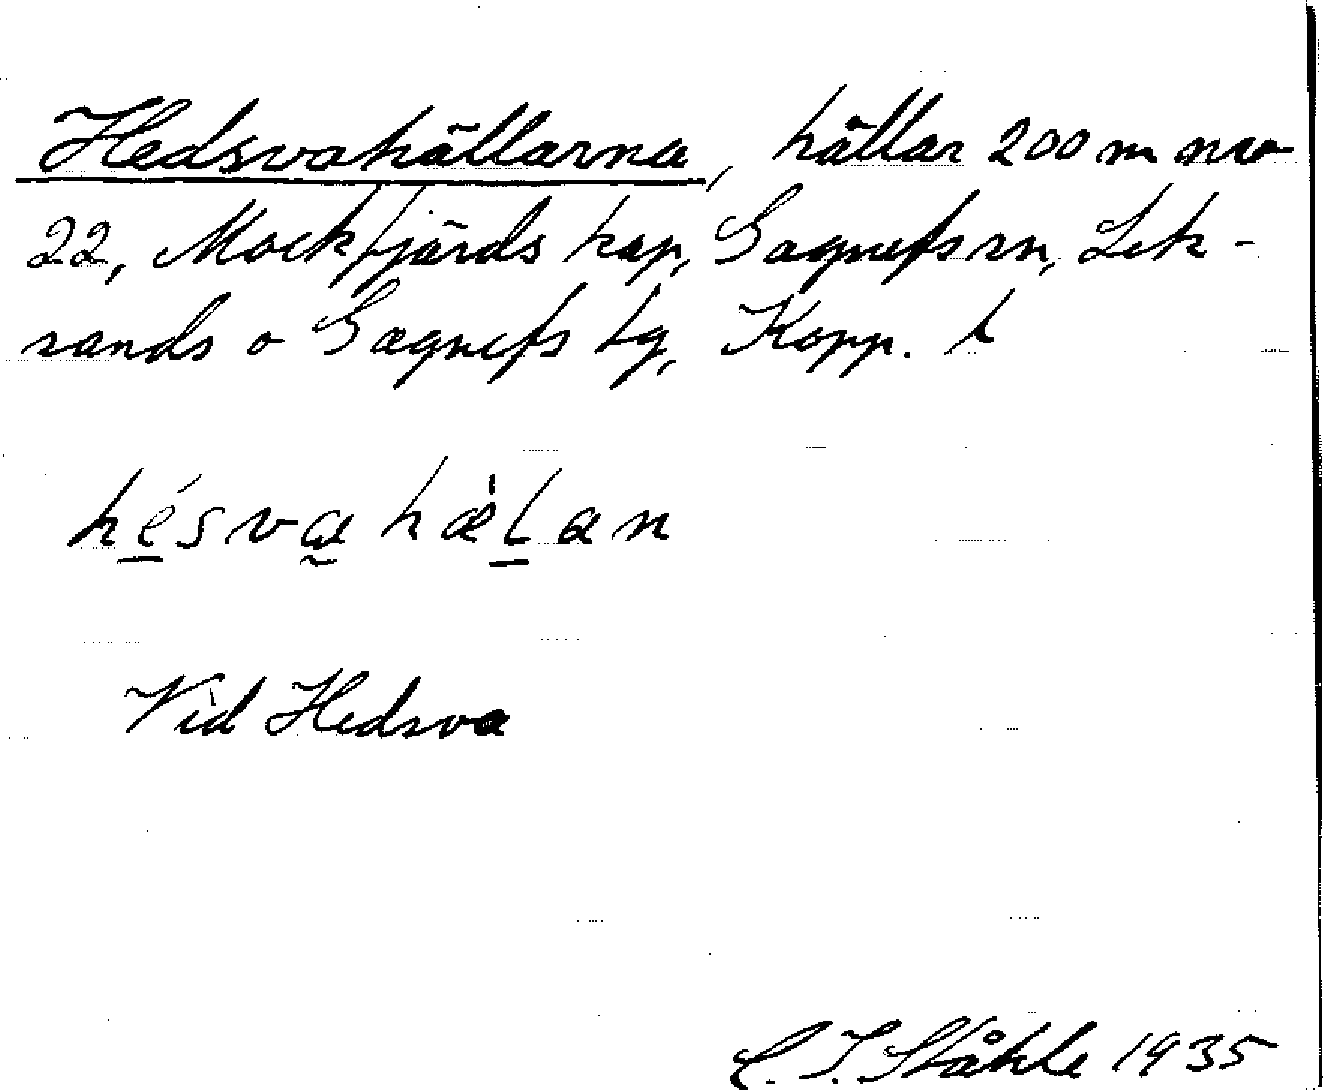 Hedsvahällarna, hällar 200 m nv
22, Mockfjärds kap, Gagnefs sn, Lek-
sands o Gagnefs tg, Kopp. l
hésvahælan
Vid Hedsva
C. I. Ståhle 1935